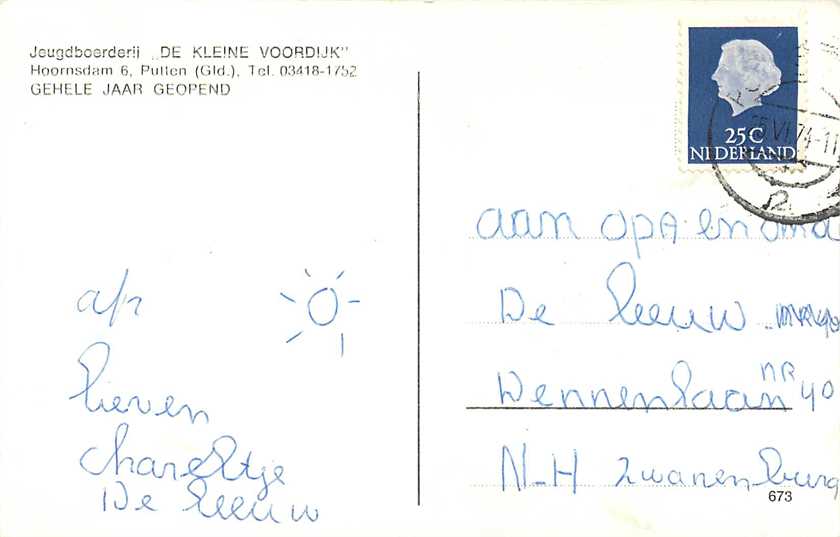 Jeugdboerderij „DE KLEINE VOORDIJK"
Hoornsdam 6, Putten (Gld.), Tel. 03418-1752
GEHELE JAAR GEOPEND
25C
NEDERLAND
VI 74-11
aan OPA en oma
De Leeuw
Dennenlaan NR 40
N-H zwanenburg
lieven
chareltje
De Leeuw
673